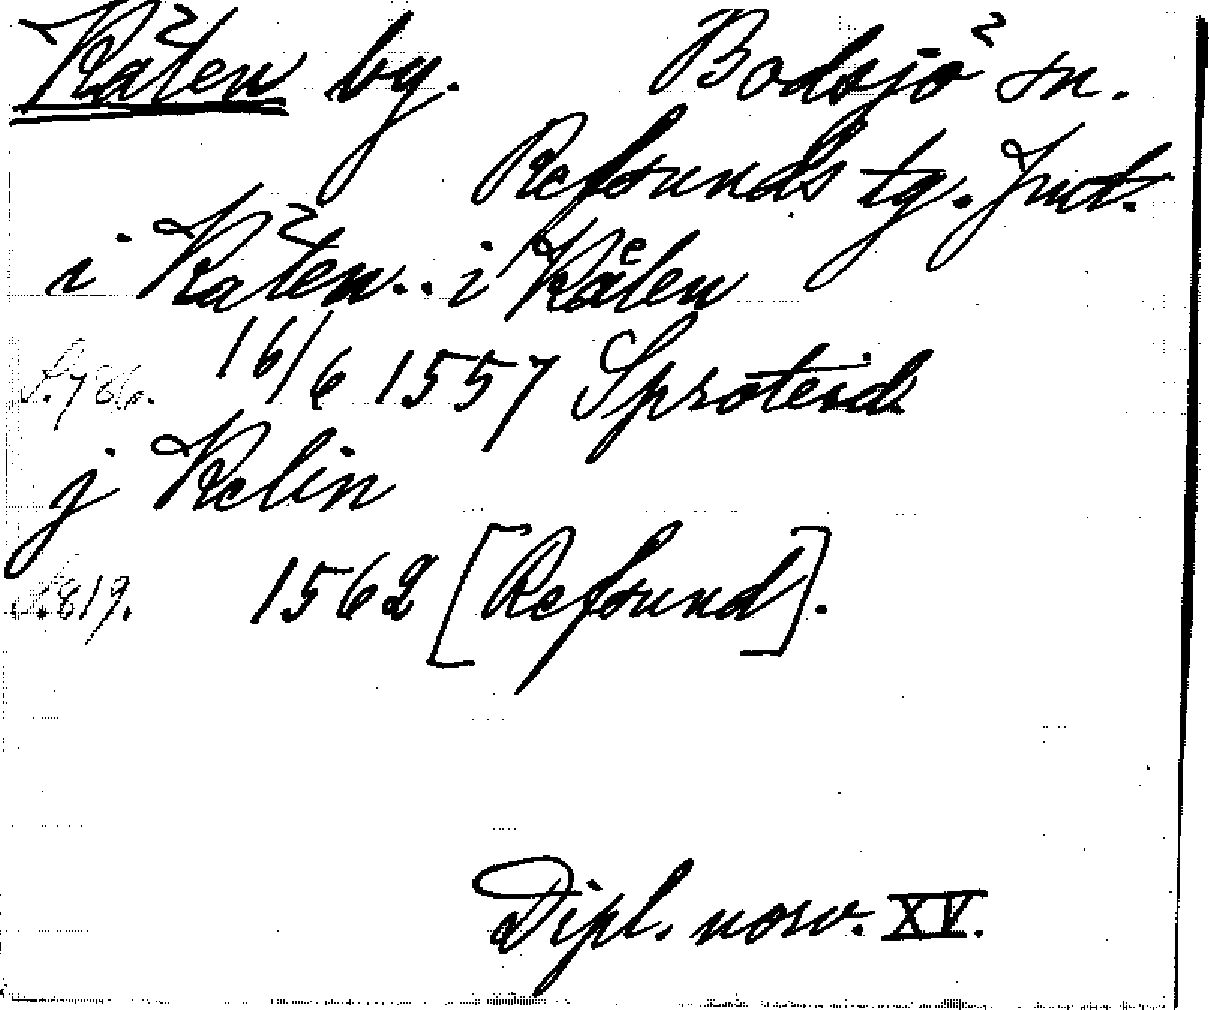 Kälen by. Bodsjö sn.
Refsunds tg. Jmtl.
i Kälen.. i Kaͤlen
S. 786. 16/6 1557 Sproteid
j Kelin
S. 819. 1562 [Refsund].
Dipl. norv. XV.